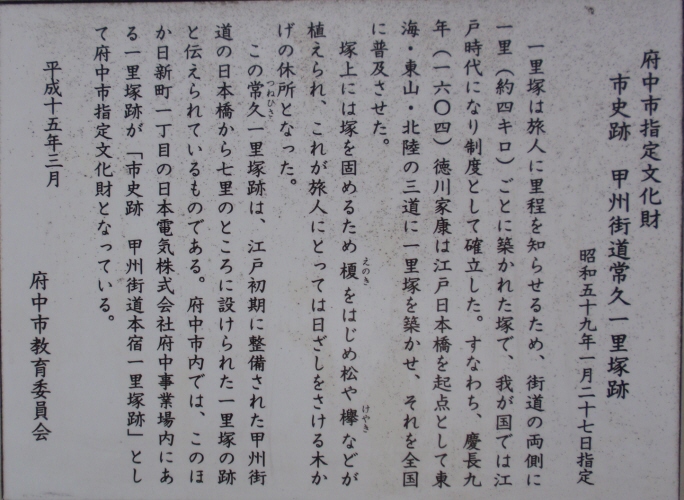 府中市指定文化財
市史跡　甲州街道常久一里塚跡
昭和五十九年一月二十七日指定
一里塚は旅人に里程を知らせるため、街道の両側に
一里（約四キロ）ごとに築かれた塚で、我が国では江
戸時代になり制度として確立した。すなわち、慶長九
年（一六〇四）徳川家康は江戸日本橋を起点として東
海・東山・北陸の三道に一里塚を築かせ、それを全国
に普及させた。
塚上には塚を固めるため榎えのきをはじめ松や欅けやきなどが
植えられ、これが旅人にとっては日ざしをさける木か
げの休所となった。
この常久つねひさ一里塚跡は、江戸初期に整備された甲州街
道の日本橋から七里のところに設けられた一里塚の跡
と伝えられているものである。府中市内では、このほ
か日新町一丁目の日本電気株式会社府中事業場内にあ
る一里塚跡が「市史跡　甲州街道本宿一里塚跡」とし
て府中市指定文化財となっている。
平成十五年三月
府中市教育委員会